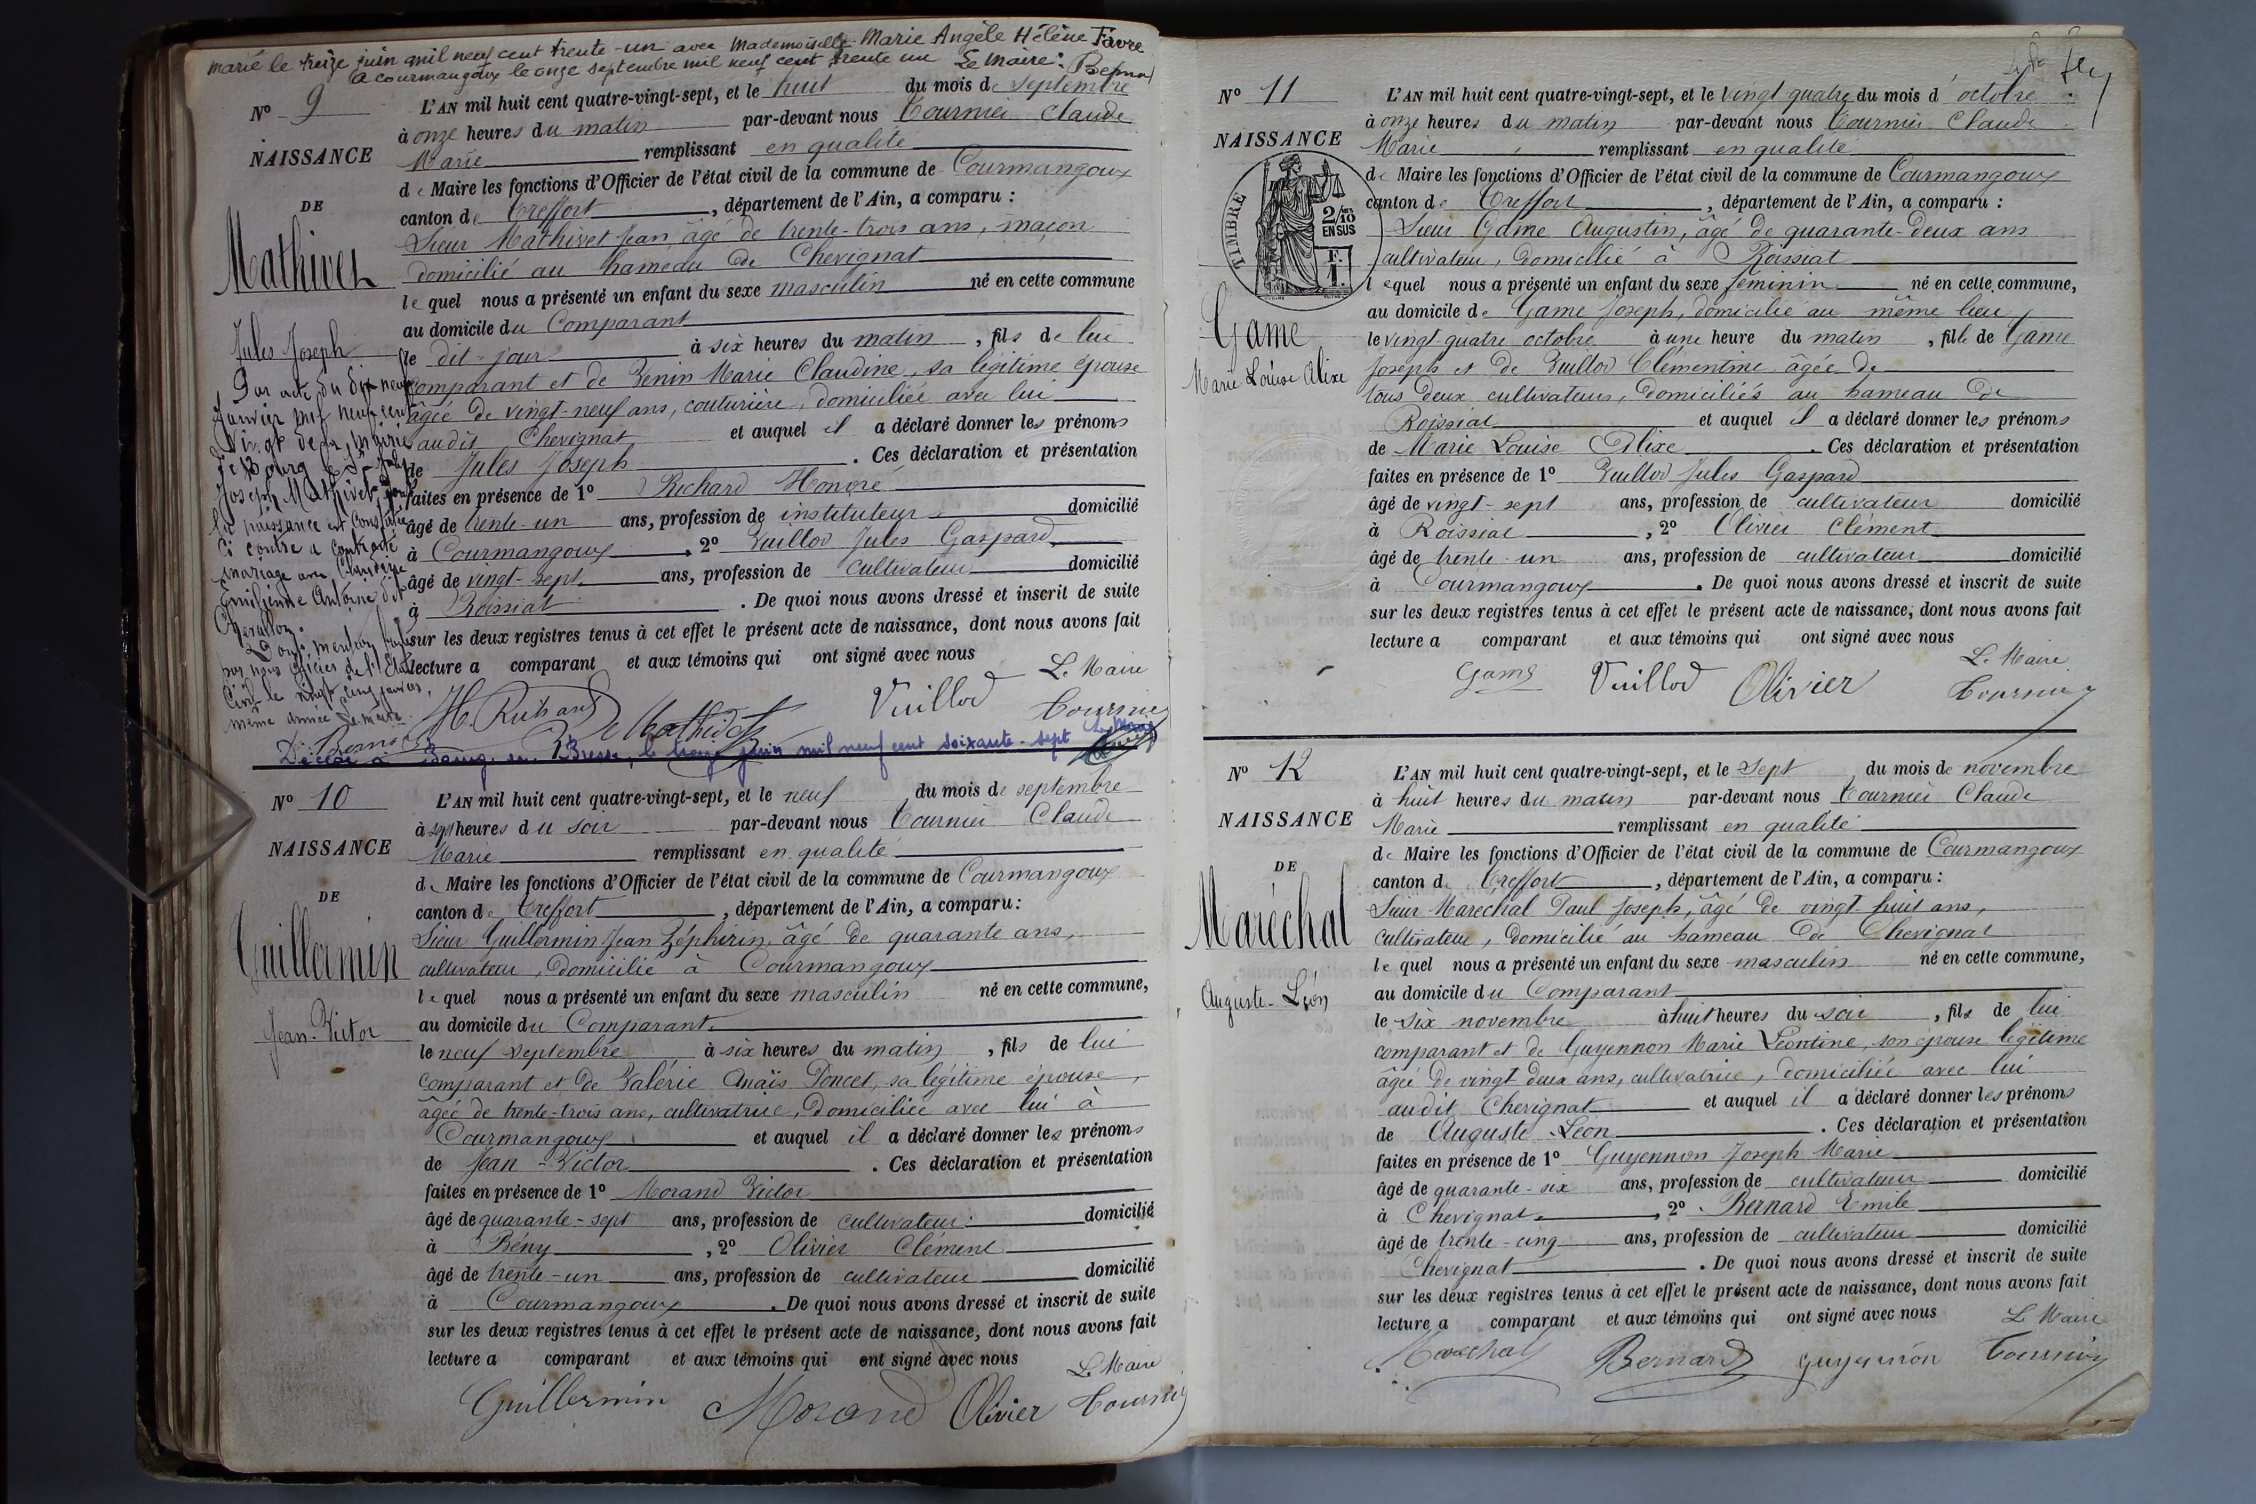 marié le treize juin mil neuf cent trente-un avec Mademoiselle Marie Angèle Hélène Favre
à courmangoux le onze septembre mil neuf cent trente un Le Maire :
N° 9
NAISSANCE
DE
Mathivet
Jules Joseph
Par acte du dix neuf
Janvier mil neuf cent
vingt deux, mairie
de Bourg le Sr Jules
Joseph Mathivet, dont
la naissance est constatée
ci contre a contracté
mariage avec Claudine
Emilienne Antoine dit
Dont mention faite
par nous officier de l'Etat
Civil le vingt cinq janvier,
même année Le Maire
L'AN mil huit cent quatre-vingt-sept, et le huit du mois de septembre
à onze heures du matin par-devant nous Tournier Claude
Marie remplissant en qualité
de Maire les fonctions d'Officier de l'état civil de la commune de Courmangoux
canton de Treffort, département de l'Ain, a comparu :
Sieur Mathivet Jean, âgé de trente-trois ans, maçon
domicilié au hameau de Chevignat
lequel nous a présenté un enfant du sexe masculin né en cette commune
au domicile du Comparant
le dit-jour à six heures du matin, fils de lui
comparant et de Benin Marie Claudine, sa légitime épouse
âgée de vingt-neuf ans, couturière, domiciliée avec lui
audit Chevignat et auquel il a déclaré donner les prénoms
de Jules Joseph. Ces déclaration et présentation
faites en présence de 1° Richard Honoré
âgé de trente-un ans, profession de instituteur domicilié
à Courmangoux, 2° Vuillod Jules Gaspard
âgé de vingt-sept ans, profession de cultivateur domicilié
à Roissiat. De quoi nous avons dressé et inscrit de suite
sur les deux registres tenus à cet effet le présent acte de naissance, dont nous avons fait
lecture a comparant et aux témoins qui ont signé avec nous
Le Maire
H. Richard Mathivet Vuillod Tournier
Décédé à Bourg en Bresse, le treize juin mil neuf cent soixante-sept Le Maire
N° 10
NAISSANCE
DE
Guillermin
Jean-Victor
L'AN mil huit cent quatre-vingt-sept, et le neuf du mois de septembre
à sept heures du soir par-devant nous Tournier Claude
Marie remplissant en qualité
de Maire les fonctions d'Officier de l'état civil de la commune de Courmangoux
canton de Treffort, département de l'Ain, a comparu :
Sieur Guillermin Jean Zéphirin, âgé de quarante ans,
cultivateur, domicilié à Courmangoux
lequel nous a présenté un enfant du sexe masculin né en cette commune,
au domicile du Comparant
le neuf septembre à six heures du matin, fils de lui
comparant et de Valérie Anaïs Poncet, sa légitime épouse,
âgée de trente-trois ans, cultivatrice, domiciliée avec lui à
Courmangoux et auquel il a déclaré donner les prénoms
de Jean-Victor. Ces déclaration et présentation
faites en présence de 1° Morand Victor
âgé de quarante-sept ans, profession de cultivateur domicilié
à Bény, 2° Olivier Clément
âgé de trente-un ans, profession de cultivateur domicilié
à Courmangoux. De quoi nous avons dressé et inscrit de suite
sur les deux registres tenus à cet effet le présent acte de naissance, dont nous avons fait
lecture a comparant et aux témoins qui ont signé avec nous
Le Maire
Guillermin Morand Olivier Tournier
N° 11
NAISSANCE
TIMBRE
2/10 EN SUS
F. 1.
Game
Marie Louise Alixe
L'AN mil huit cent quatre-vingt-sept, et le vingt quatre du mois d'octobre
à onze heures du matin par-devant nous Tournier Claude
Marie remplissant en qualité
de Maire les fonctions d'Officier de l'état civil de la commune de Courmangoux
canton de Treffort, département de l'Ain, a comparu :
Sieur Game Augustin, âgé de quarante-deux ans
cultivateur, domicilié à Roissiat
lequel nous a présenté un enfant du sexe féminin né en cette commune,
au domicile de Game Joseph, domicilié au même lieu,
le vingt quatre octobre à une heure du matin, fille de Game
Joseph et de Vuillod Clémentine âgée de
tous deux cultivateurs, domiciliés au hameau de
Roissiat et auquel il a déclaré donner les prénoms
de Marie Louise Alixe. Ces déclaration et présentation
faites en présence de 1° Vuillod Jules Gaspard
âgé de vingt-sept ans, profession de cultivateur domicilié
à Roissiat, 2° Olivier Clément
âgé de trente-un ans, profession de cultivateur domicilié
à Courmangoux. De quoi nous avons dressé et inscrit de suite
sur les deux registres tenus à cet effet le présent acte de naissance, dont nous avons fait
lecture a comparant et aux témoins qui ont signé avec nous
Le Maire
Game Vuillod Olivier Tournier
N° 12
NAISSANCE
DE
Maréchal
Auguste-Léon
L'AN mil huit cent quatre-vingt-sept, et le sept du mois de novembre
à huit heures du matin par-devant nous Tournier Claude
Marie remplissant en qualité
de Maire les fonctions d'Officier de l'état civil de la commune de Courmangoux
canton de Treffort, département de l'Ain, a comparu :
Sieur Maréchal Paul Joseph, âgé de vingt-huit ans,
cultivateur, domicilié au hameau de Chevignat
lequel nous a présenté un enfant du sexe masculin né en cette commune,
au domicile du Comparant
le six novembre à huit heures du soir, fils de lui
comparant et de Guyennon Marie Léontine, son épouse légitime
âgée de vingt deux ans, cultivatrice, domiciliée avec lui
audit Chevignat et auquel il a déclaré donner les prénoms
de Auguste Léon. Ces déclaration et présentation
faites en présence de 1° Guyennon Joseph Marie
âgé de quarante-six ans, profession de cultivateur domicilié
à Chevignat, 2° Bernard Emile
âgé de trente-cinq ans, profession de cultivateur domicilié
Chevignat. De quoi nous avons dressé et inscrit de suite
sur les deux registres tenus à cet effet le présent acte de naissance, dont nous avons fait
lecture a comparant et aux témoins qui ont signé avec nous
Le Maire
Maréchal Bernard guyennon Tournier